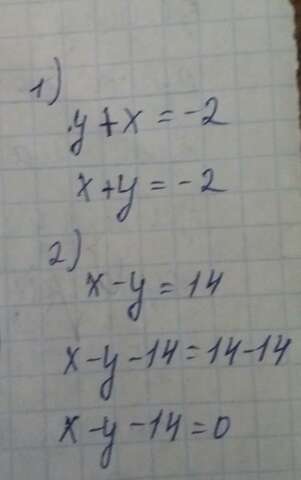 1)
y + x = -2
x + y = -2
2)
x - y = 14
x - y - 14 = 14 - 14
x - y - 14 = 0